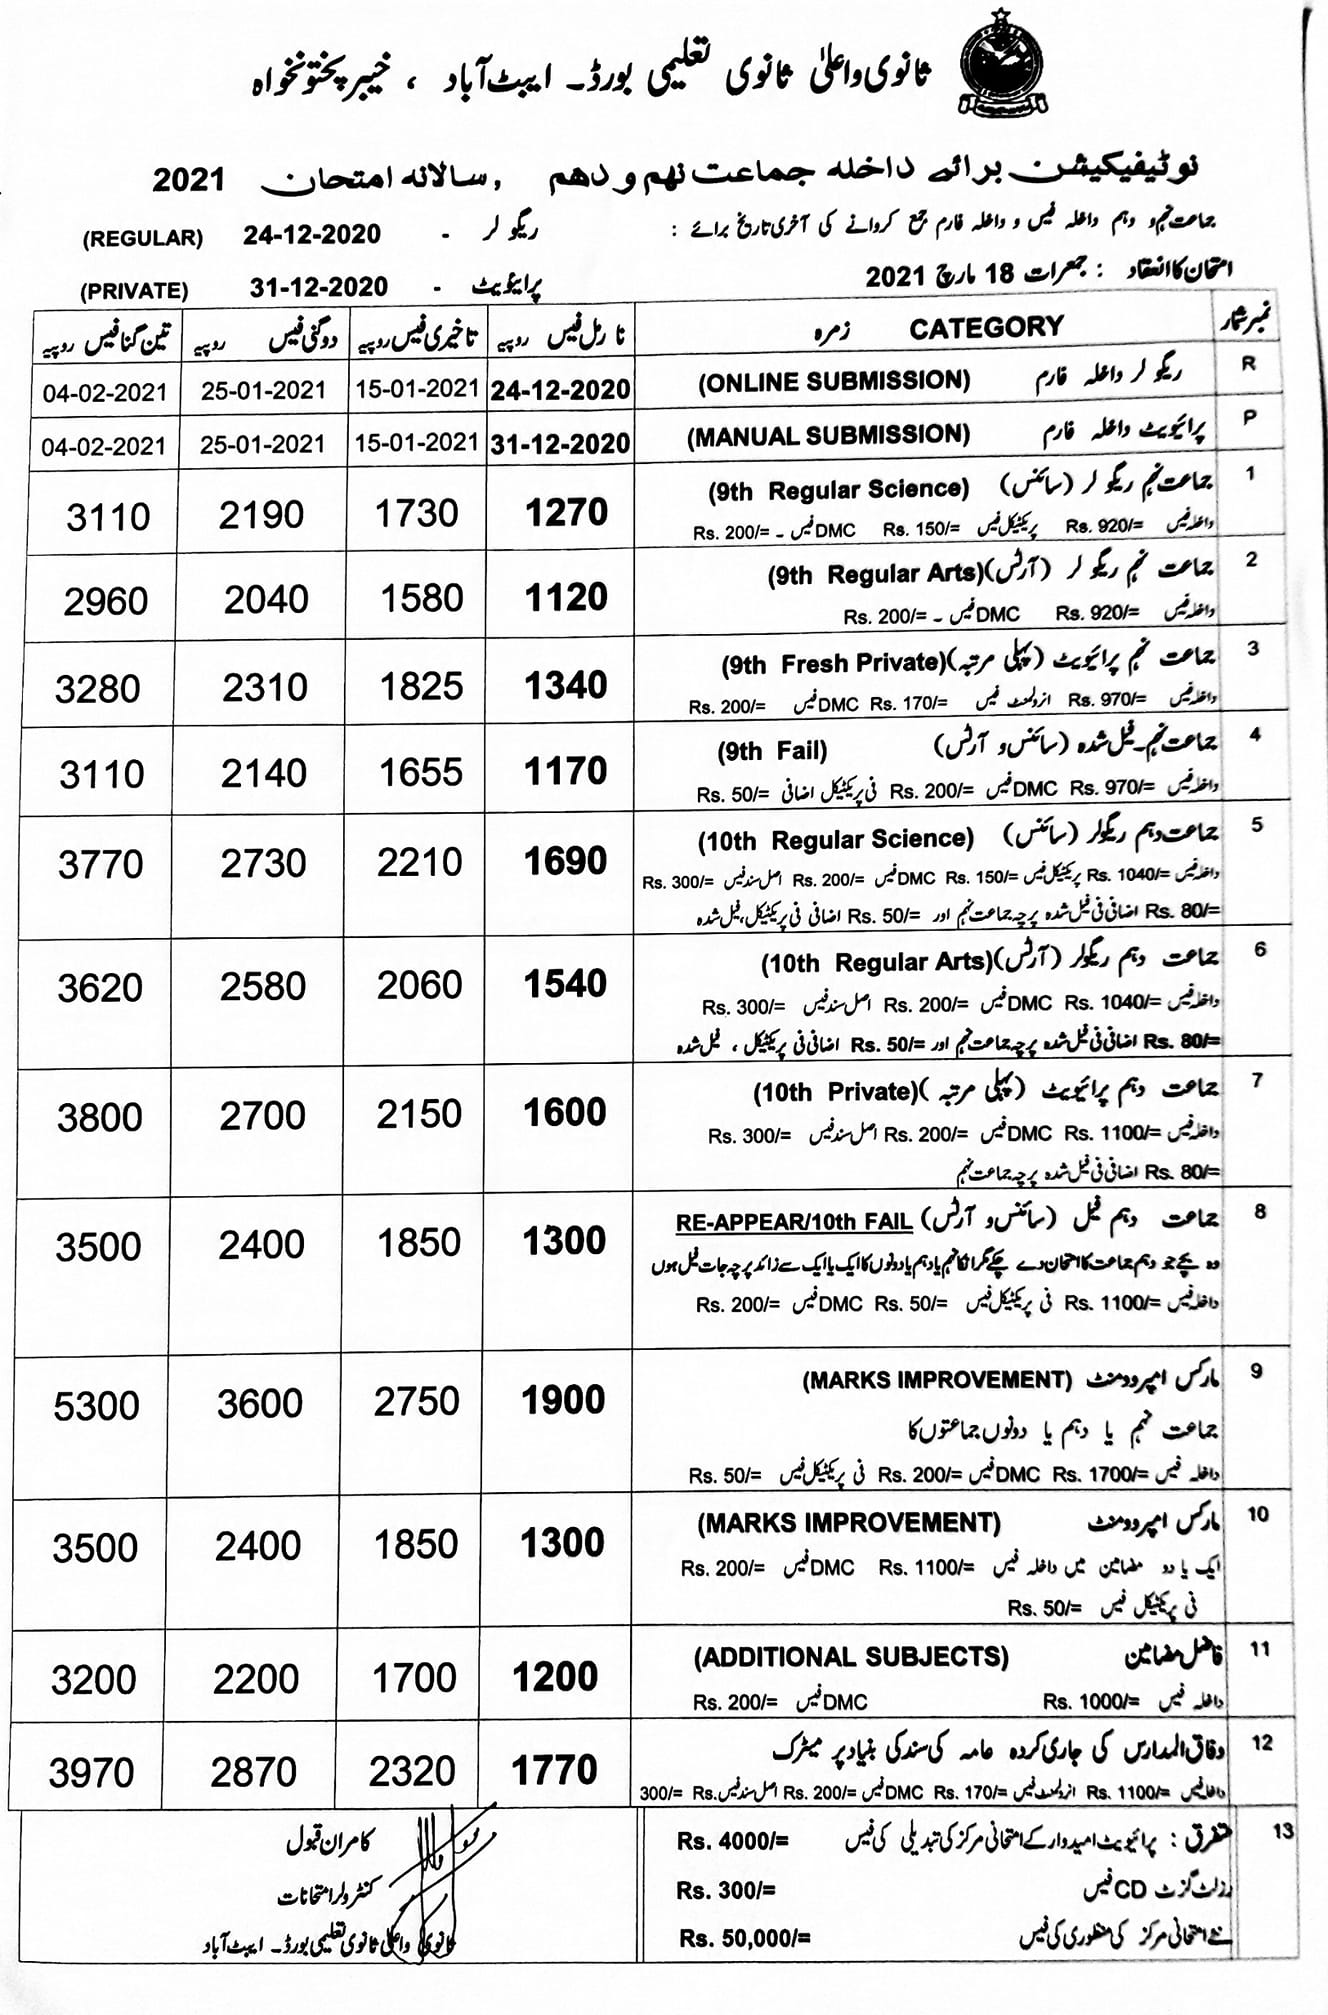 ثانوی و اعلیٰ ثانوی تعلیمی بورڈ۔ ایبٹ آباد ، خیبر پختونخواہ
نوٹیفیکیشن برائے داخلہ جماعت نہم و دھم , سالانہ امتحان 2021
جماعت نہم و دہم داخلہ فیس و داخلہ فارم جمع کروانے کی آخری تاریخ برائے : ریگولر - 24-12-2020 (REGULAR)
امتحان کا انعقاد : جمعرات 18 مارچ 2021 پرائیویٹ - 31-12-2020 (PRIVATE)
نمبر شمار زمرہ CATEGORY نارمل فیس روپیے تاخیری فیس روپیے دوگنی فیس روپیے تین گنا فیس روپیے
R ریگولر داخلہ فارم (ONLINE SUBMISSION) 24-12-2020 15-01-2021 25-01-2021 04-02-2021
P پرائیویٹ داخلہ فارم (MANUAL SUBMISSION) 31-12-2020 15-01-2021 25-01-2021 04-02-2021
1 جماعت نہم ریگولر (سائنس) (9th Regular Science) 1270 1730 2190 3110
داخلہ فیس Rs. 920/= پریکٹیکل فیس Rs. 150/= DMC فیس - Rs. 200/=
2 جماعت نہم ریگولر (آرٹس)(9th Regular Arts) 1120 1580 2040 2960
داخلہ فیس Rs. 920/= DMC فیس - Rs. 200/=
3 جماعت نہم پرائیویٹ (پہلی مرتبہ)(9th Fresh Private) 1340 1825 2310 3280
داخلہ فیس Rs. 970/= انرولمنٹ فیس Rs. 170/= DMC فیس Rs. 200/=
4 جماعت نہم۔فیل شدہ (سائنس و آرٹس) (9th Fail) 1170 1655 2140 3110
داخلہ فیس Rs. 970/= DMC فیس Rs. 200/= فی پریکٹیکل اضافی Rs. 50/=
5 جماعت دہم ریگولر (سائنس) (10th Regular Science) 1690 2210 2730 3770
داخلہ فیس Rs. 1040/= پریکٹیکل فیس Rs. 150/= DMC فیس Rs. 200/= اصل سند فیس Rs. 300/=
Rs. 80/= اضافی فی فیل شدہ پرچہ جماعت نہم اور Rs. 50/= اضافی فی پریکٹیکل، فیل شدہ
6 جماعت دہم ریگولر (آرٹس)(10th Regular Arts) 1540 2060 2580 3620
داخلہ فیس Rs. 1040/= DMC فیس Rs. 200/= اصل سند فیس Rs. 300/=
Rs. 80/= اضافی فی فیل شدہ پرچہ جماعت نہم اور Rs. 50/= اضافی فی پریکٹیکل ، فیل شدہ
7 جماعت دہم پرائیویٹ (پہلی مرتبہ )(10th Private) 1600 2150 2700 3800
داخلہ فیس Rs. 1100/= DMC فیس Rs. 200/= اصل سند فیس Rs. 300/=
Rs. 80/= اضافی فی فیل شدہ پرچہ جماعت نہم
8 جماعت دہم فیل (سائنس و آرٹس) RE-APPEAR/10th FAIL 1300 1850 2400 3500
وہ بچے جو دہم جماعت کا امتحان دے چکے مگر انکا نہم یا دہم یا دونوں کا ایک یا ایک سے زائد پرچہ جات فیل ہوں
داخلہ فیس Rs. 1100/= فی پریکٹیکل فیس Rs. 50/= DMC فیس Rs. 200/=
9 مارکس امپروومنٹ (MARKS IMPROVEMENT) 1900 2750 3600 5300
جماعت نہم یا دہم یا دونوں جماعتوں کا
داخلہ فیس Rs. 1700/= DMC فیس Rs. 200/= فی پریکٹیکل فیس Rs. 50/=
10 مارکس امپروومنٹ (MARKS IMPROVEMENT) 1300 1850 2400 3500
ایک یا دو مضامین میں داخلہ فیس Rs. 1100/= DMC فیس Rs. 200/=
فی پریکٹیکل فیس Rs. 50/=
11 فاضل مضامین (ADDITIONAL SUBJECTS) 1200 1700 2200 3200
داخلہ فیس Rs. 1000/= DMC فیس Rs. 200/=
12 وفاق المدارس کی جاری کردہ عامہ کی سند کی بنیاد پر میٹرک 1770 2320 2870 3970
داخلہ فیس Rs. 1100/= انرولمنٹ فیس Rs. 170/= DMC فیس Rs. 200/= اصل سند فیس Rs. 300/=
13 متفرق : پرائیویٹ امیدوار کے امتحانی مرکز کی تبدیلی کی فیس Rs. 4000/=
رزلٹ گزٹ CD فیس Rs. 300/=
نئے امتحانی مرکز کی منظوری کی فیس Rs. 50,000/=
کامران قبول
کنٹرولر امتحانات
ثانوی و اعلیٰ ثانوی تعلیمی بورڈ۔ ایبٹ آباد